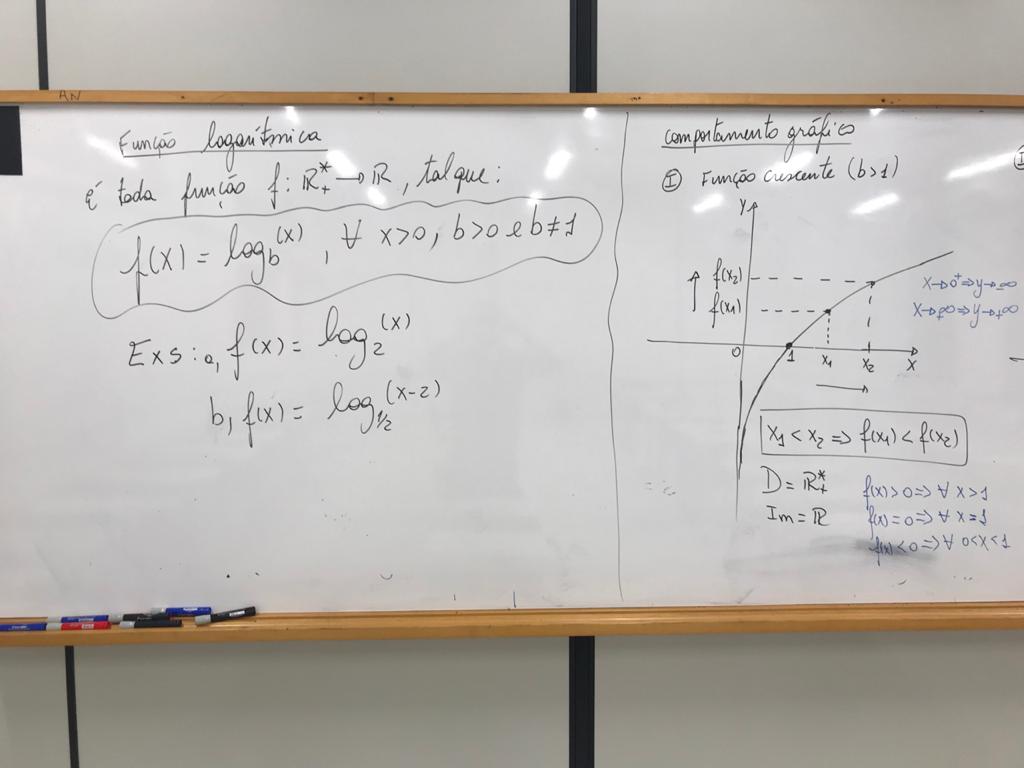 AN
Função logarítmica
É toda função f: ℝ₊* → ℝ, tal que:
f(x) = log_b^(x), ∀ x>0, b>0 e b≠1
Exs: a, f(x) = log₂^(x)
b, f(x) = log_½^(x-2)
comportamento gráfico
Ⓘ Função crescente (b>1)
y
f(x₂)
f(x₁)
x→0⁺⇒y→-∞
x→+∞⇒y→+∞
0 1 x₁ x₂ x
x₁ < x₂ ⇒ f(x₁) < f(x₂)
D = ℝ₊*
Im = ℝ
f(x)>0⇒∀ x>1
f(x)=0⇒∀ x=1
f(x)<0⇒∀ 0<x<1